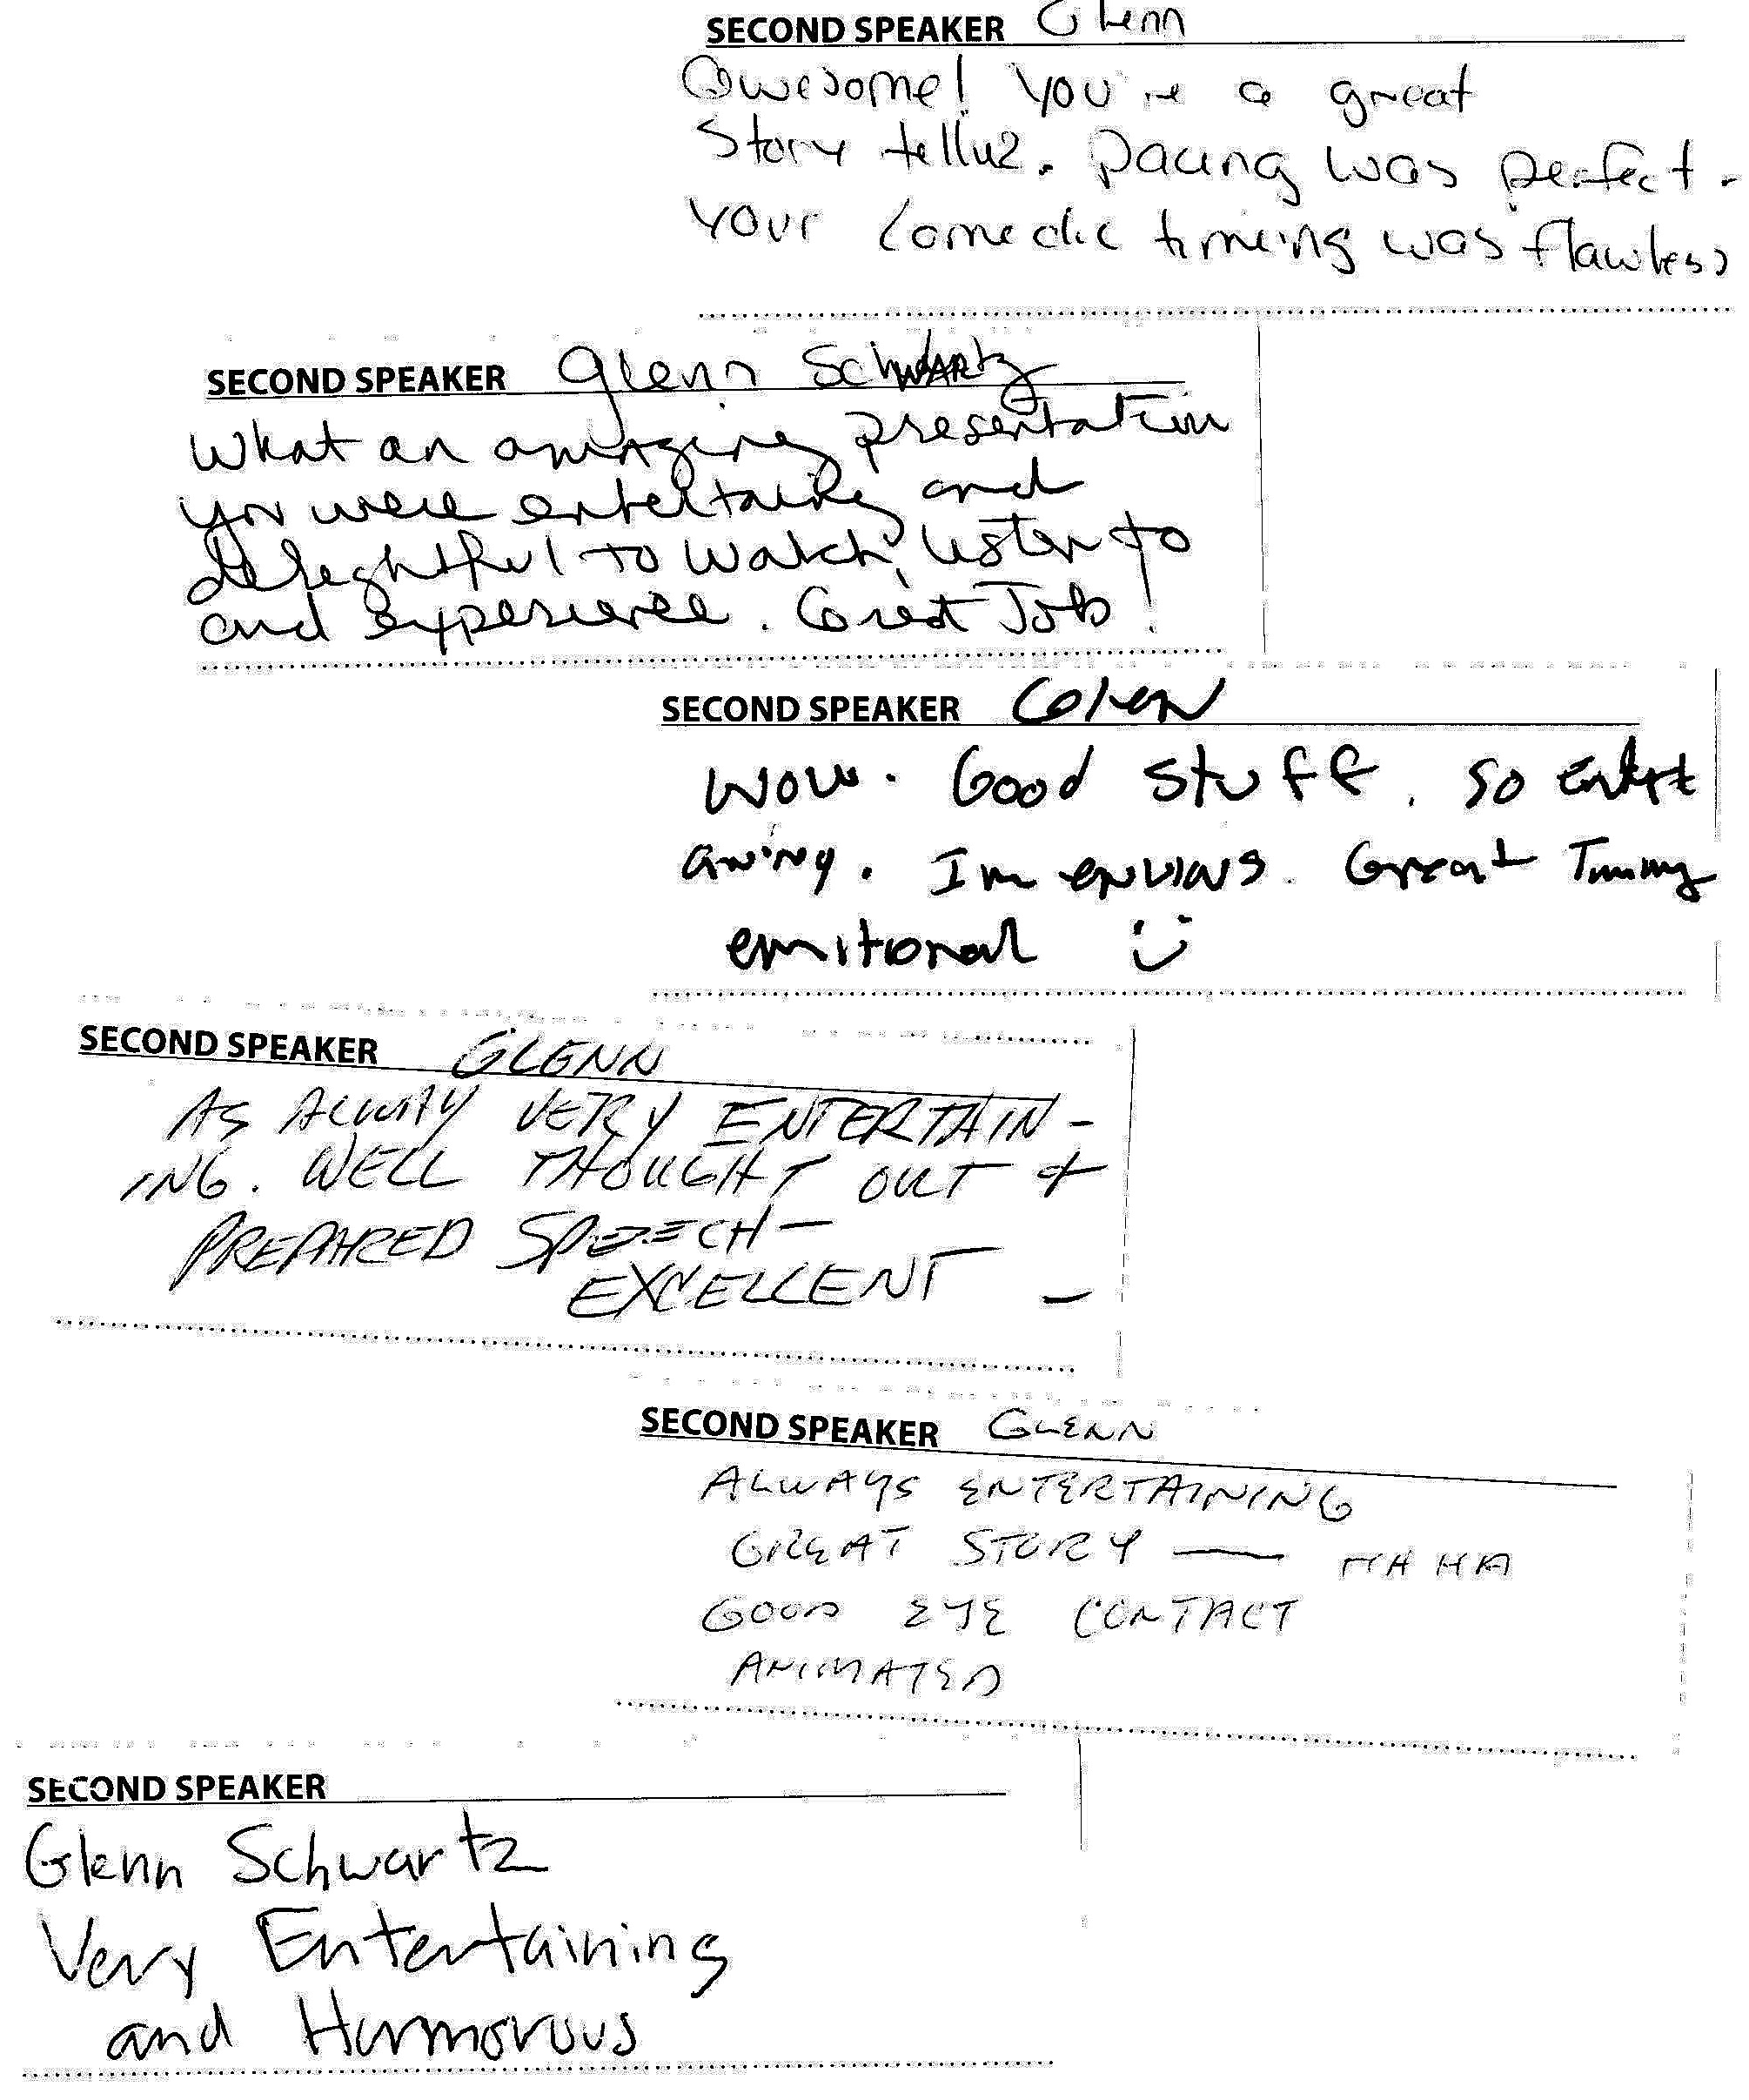 SECOND SPEAKER Glenn
Awesome! You're a great
Story teller. pacing was perfect.
your comedic timeing was flawless
SECOND SPEAKER Glenn Schwartz
What an amazing presentation
you were entertaing and
delightful to watch, listen to
and experience. Great Job!
SECOND SPEAKER Glen
Wow. Good stuff. So entert
aning. Im envious. Great Timing
emitional
SECOND SPEAKER GLENN
AS ALWAY VERY ENTERTAIN-
ING. WELL THOUGHT OUT +
PREPARED SPEECH-
EXCELLENT -
SECOND SPEAKER GLENN
ALWAYS ENTERTAINING
GREAT STORY — HA HA
GOOD EYE CONTACT
ANIMATED
SECOND SPEAKER
Glenn Schwartz
Very Entertaining
and Humorous